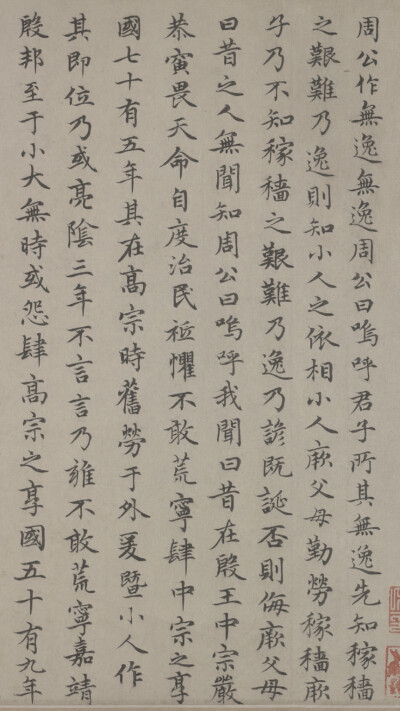 周公作無逸無逸周公曰嗚呼君子所其無逸先知稼穡
之艱難乃逸則知小人之依相小人厥父母勤勞稼穡厥
子乃不知稼穡之艱難乃逸乃諺既誕否則侮厥父母
曰昔之人無聞知周公曰嗚呼我聞曰昔在殷王中宗嚴
恭寅畏天命自度治民祗懼不敢荒寧肆中宗之享
國七十有五年其在高宗時舊勞于外爰暨小人作
其即位乃或亮陰三年不言言乃雍不敢荒寧嘉靖
殷邦至于小大無時或怨肆高宗之享國五十有九年